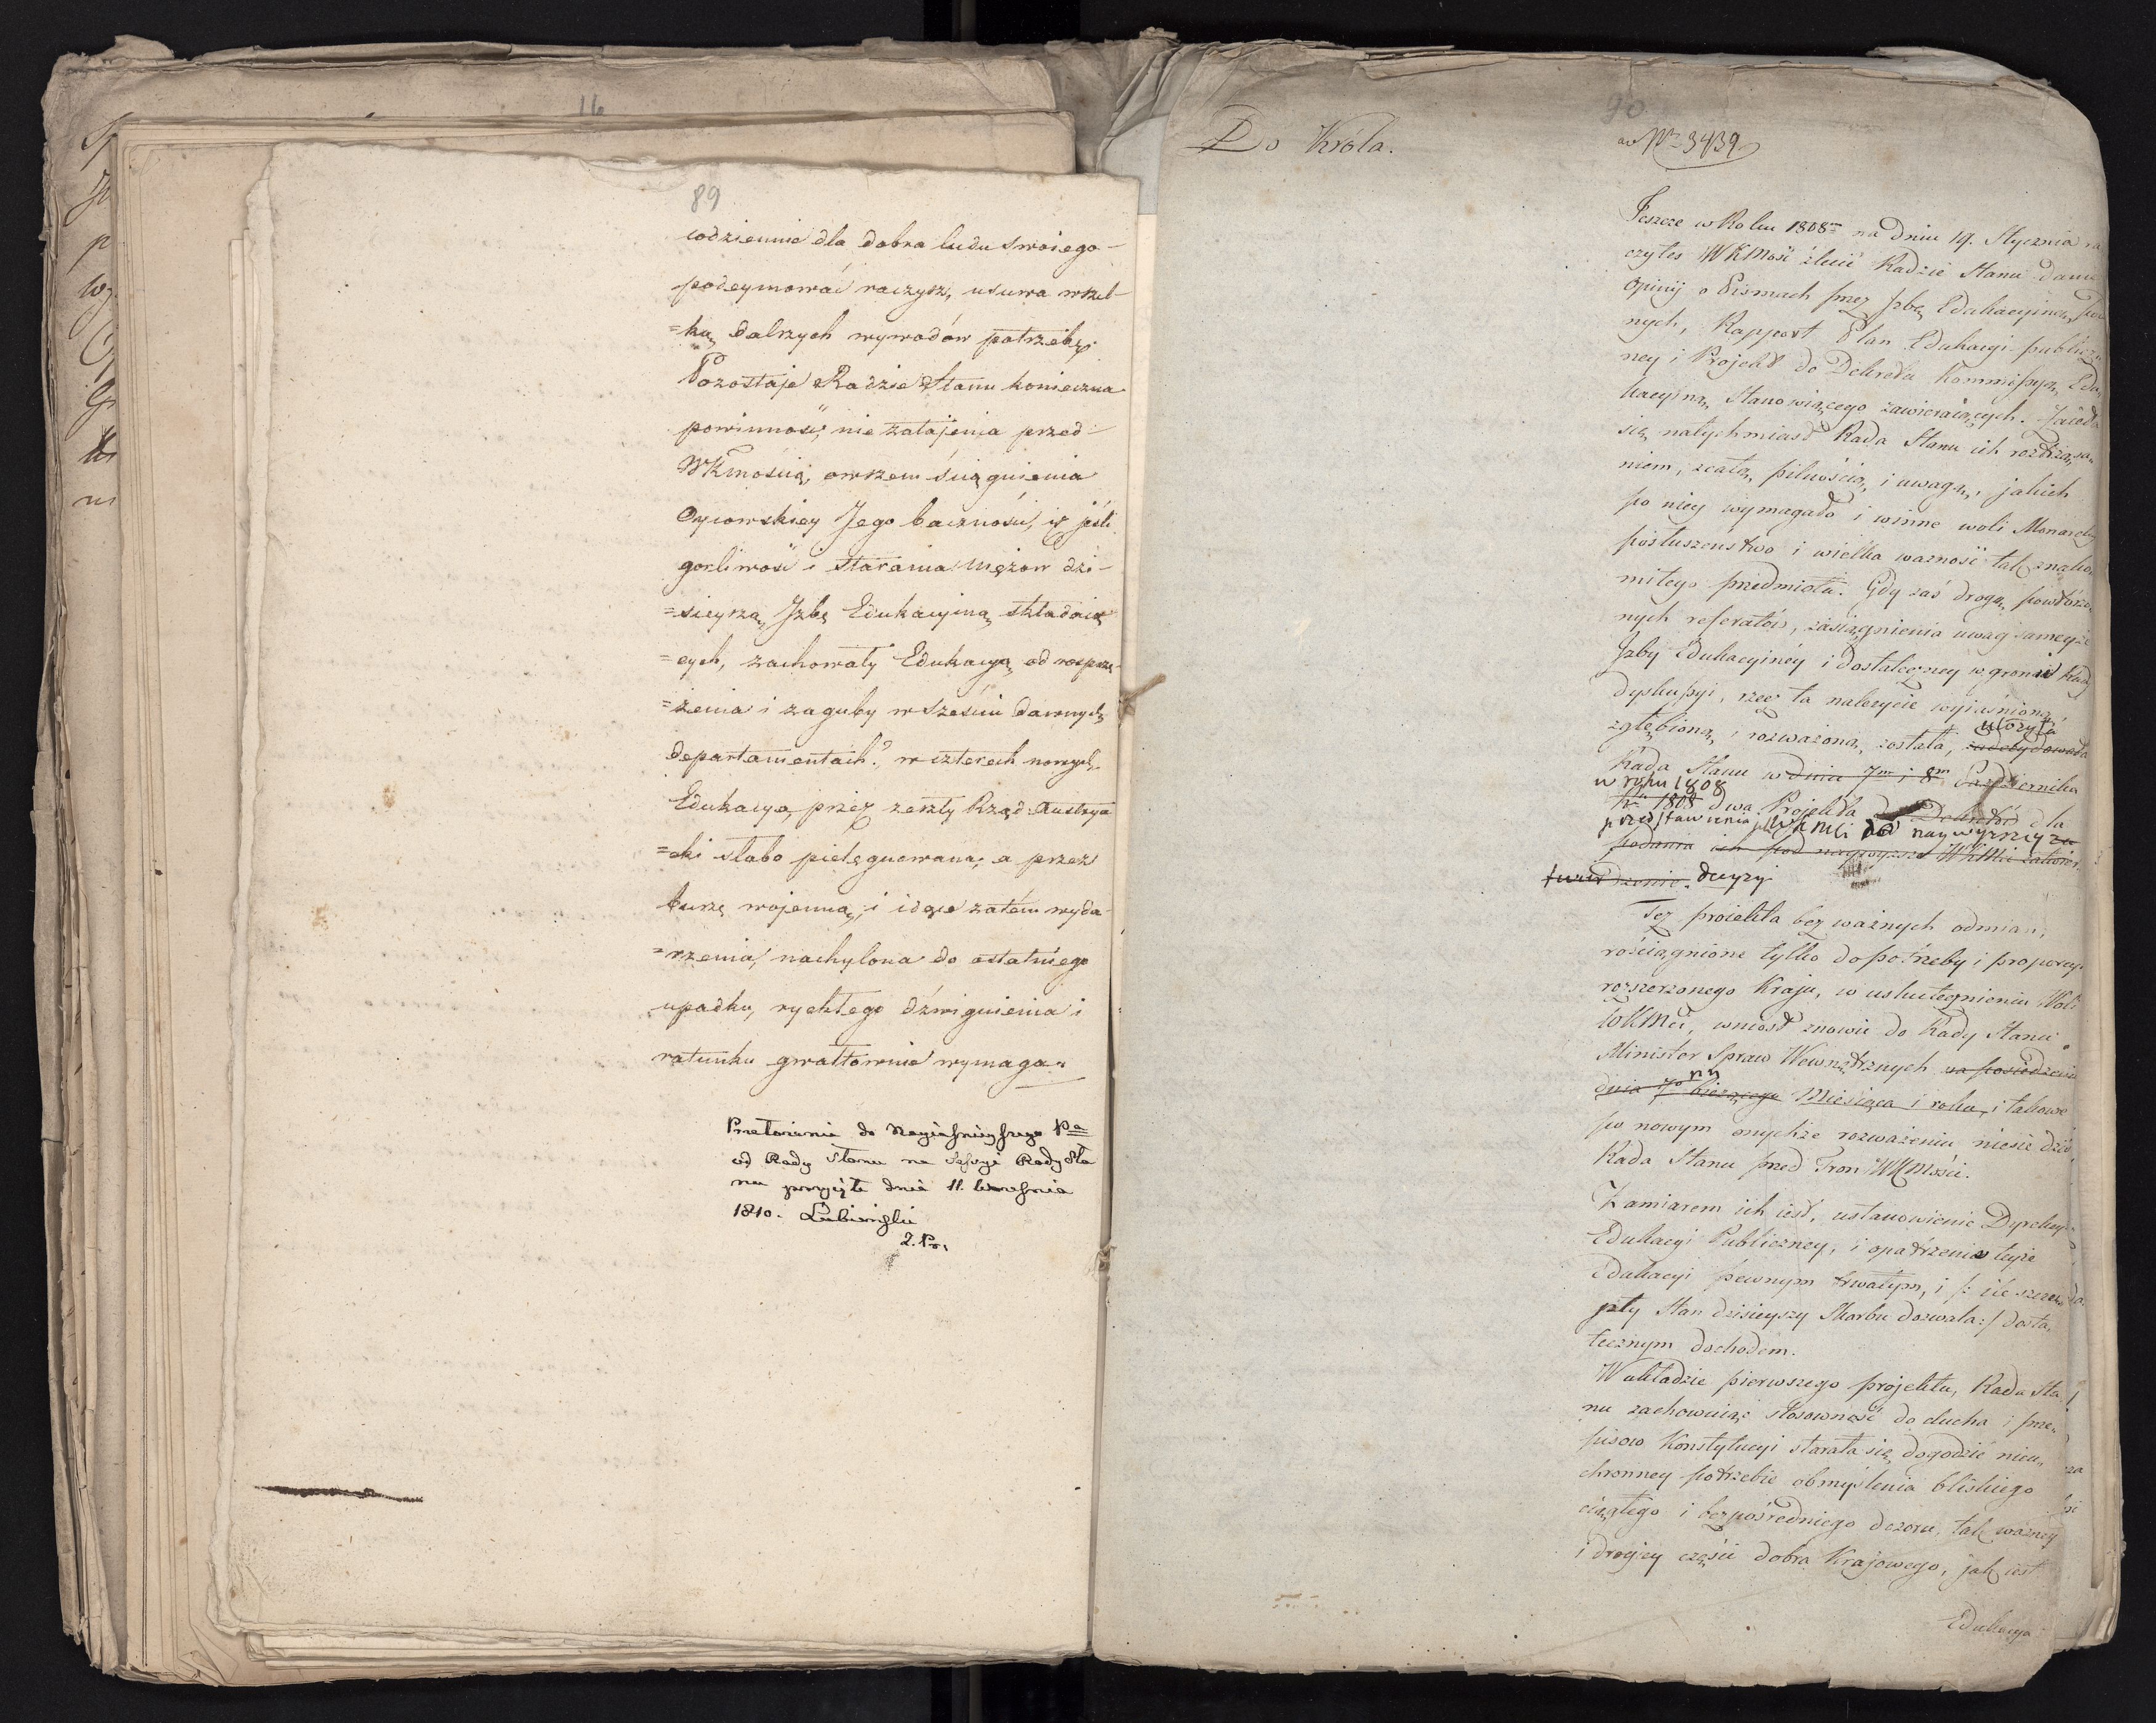 16
89
codziennie dla dobra ludu swoiego-
podeymować raczysz, usuwa wszel-
=ką dalszych wywodów potrzebę.
Pozostaje Radzie Stanu konieczna
powinność, nie zatajenia przed-
WKmością, owszem ściągnienia
Oycowskiey Jego baczności, iż jeśli
gorliwość i starania Mężow dzi-
=sieyszą Jzbę Edukacyiną składaią
=cych, zachowały Edukacyą od rosprzę-
=żenia i zaguby w sześciu dawnych
departamentach; w czterech nowych
Edukacya, przez zeszły Rząd Austrya
=cki słabo pielęgnowana, a przez
burzę wojenną, i idące zatém wyda-
=rzenia, nachylona do ostatniego
upadku, rychłego dźwignienia i
ratunku gwałtownie wymaga.
Przełożenie do Nayiaśnieyszego Pa
od Rady Stanu na Sessyi Rady Sta
nu przyięte dnia 11. Września
1810. Lubieński
Do Króla.
90
ad Nro 3439
Jeszcze w Roku 1808m na dniu 19. Stycznia ra
czyłeś WKMość zlecić Radzie Stanu danie
Opinij o Pismach przez Jzbę Edukacyiną
nych, Rapport Plan Edukacyi publicz
ney i Projekt do Dekretu Kommissyą Edu
kacyiną Stanowiącego zawieraiących. Zaięła
się natychmiast Rada Stanu ich roztrząsa
niem, z całą pilnością i uwagą, jakich
po niey wymagało i winne woli Monarchy
posłuszeństwo i wielka ważność tak znako
mitego przedmiotu. Gdy zaś drogą powtórzo
nych referatów, zasiągnienia uwag sameyże
Jzby Edukacyiney i dostateczney w gronie Rady
dyskussyi, rzecz ta należycie wyiaśnioną,
zgłębioną, i rozważoną została, ułożyła zadecydowała
Rada Stanu w dniu 7m i 8m Października
w roku 1808
Ru 1808 dwa Projekta do Dekretów dla
przedstawienia WKMci do naywyższey
podania ich pod naywyższe WKMci zatwier
twierdzenie. decyzyi
Też proiekta bez ważnych odmian,
rościągnione tylko do potrzeby i proporcyi
rozszerzonego Kraju, w uskutecznieniu Woli
WKMci, wniosł znowu do Rady Stanu
Minister Spraw Wewnętrznych na posiedzeniu
dnia 7o bieżącego Miesiąca i roku, i takowe
po nowym onychże rozważeniu niesie dziś
Rada Stanu przed Tron WKMości.
Zamiarem ich iest, ustanowienie Dyrekcyi
Edukacyi Publiczney, i opatrzenie teyże
Edukacyi pewnym trwałym, i /: ile szczu
pły Stan dzisieyszy Skarbu dozwala :/ dosta
tecznym dochodem.
W układzie pierwszego projektu, Rada Sta
nu zachowuiąc stosowność do ducha i prze
pisow Konstytucyi starała się dogodzić nieu
chronney potrzebie obmyślenia bliskiego
ciągłego i bezpośredniego dozoru, tak ważney
i drogiey części dobra Krajowego, jak iest
Edukacya